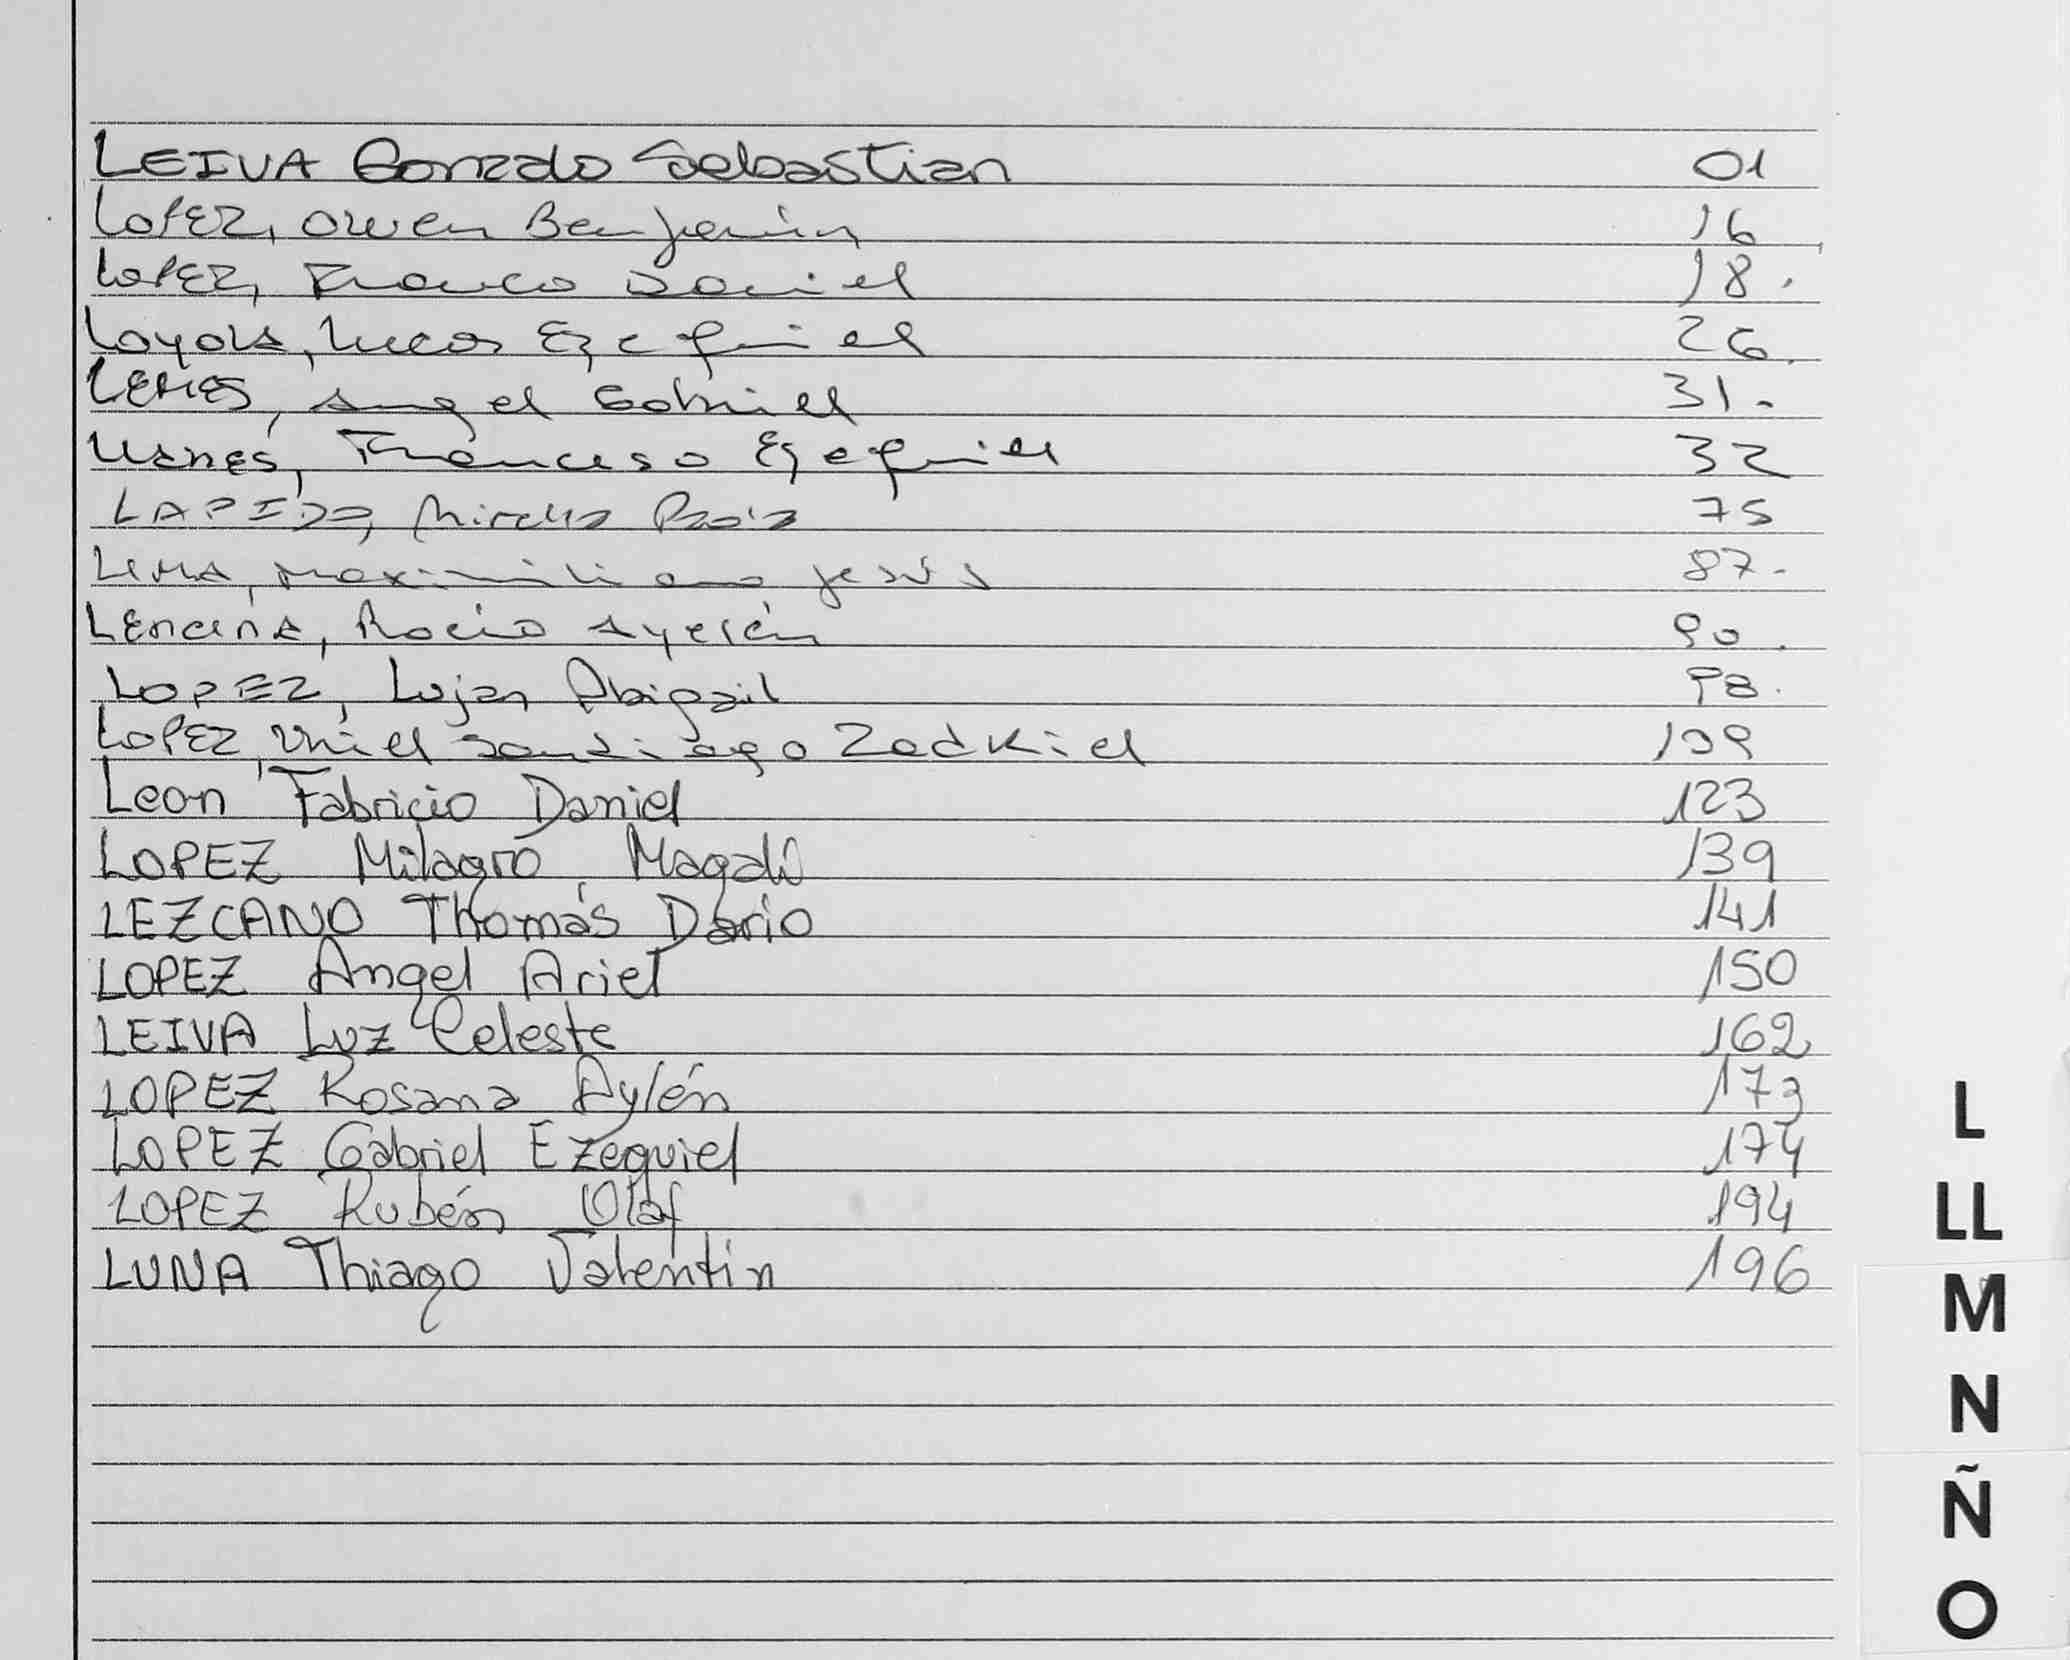 LEIVA Gonzalo Sebastian 01
LOPEZ, Owen Benjamin 16
LOPEZ, Franco Daniel 18.
Loyola, Lucas Ezequiel 26.
LEMES, Angel Gabriel 31.
Francesо Ezequiel 32
LAPIDO, Mirella 75
LEMA, Maximiliano Jesús 87.
LEncina, Rocio Ayelén 90.
LOPEZ, Lujan Abigail 98.
LOPEZ, Uriel Santiago Zadkiel 109
Leon Fabricio Daniel 123
LOPEZ Milagro Magalí 139
LEZCANO Thomás Dario 141
LOPEZ Angel Ariel 150
LEIVA Luz Celeste 162
LOPEZ Rosana Aylén 173
LOPEZ Gabriel Ezequiel 174
LOPEZ Rubén Olaf 194
LUNA Thiago Valentín 196
L
LL
M
N
Ñ
O